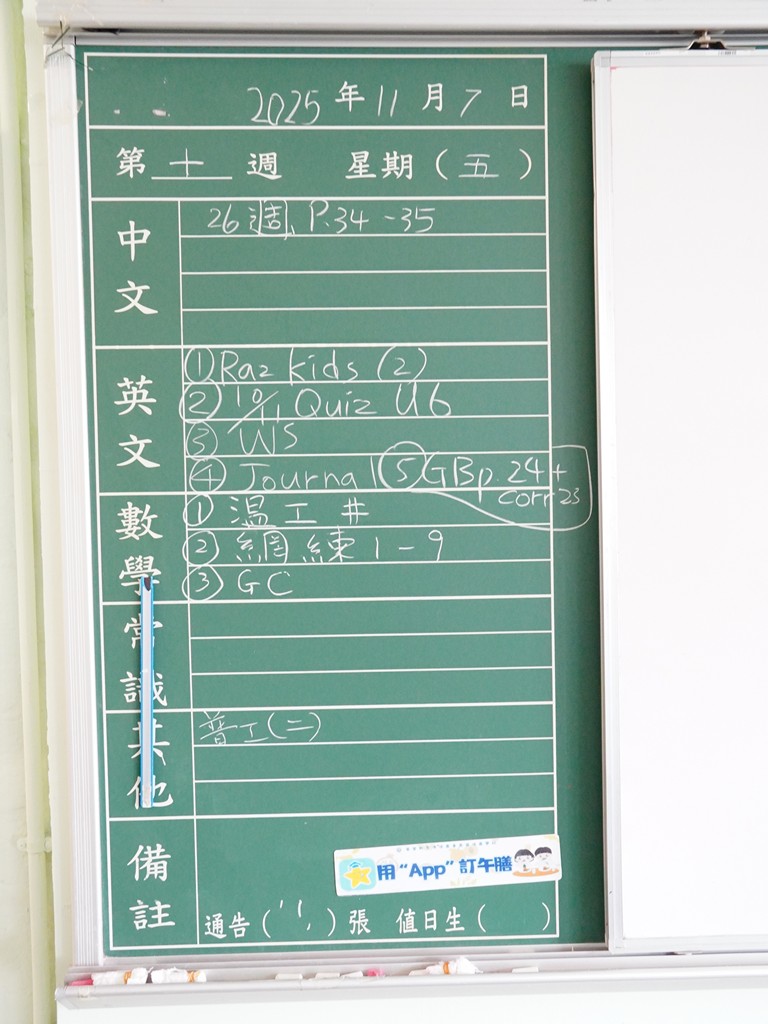 2025 年 11 月 7 日
第 十 週 星期 ( 五 )
中文
26週, P.34-35
英文
① Raz kids (2)
② 10/11 Quiz U6
③ WS
④ Journal ⑤ GBp.24+
corr 23
數學
① 温工 #
② 網練 1-9
③ GC
常識
其他
普工(二)
備註
用“App”訂午膳
通告 ( ) 張 值日生 ( )